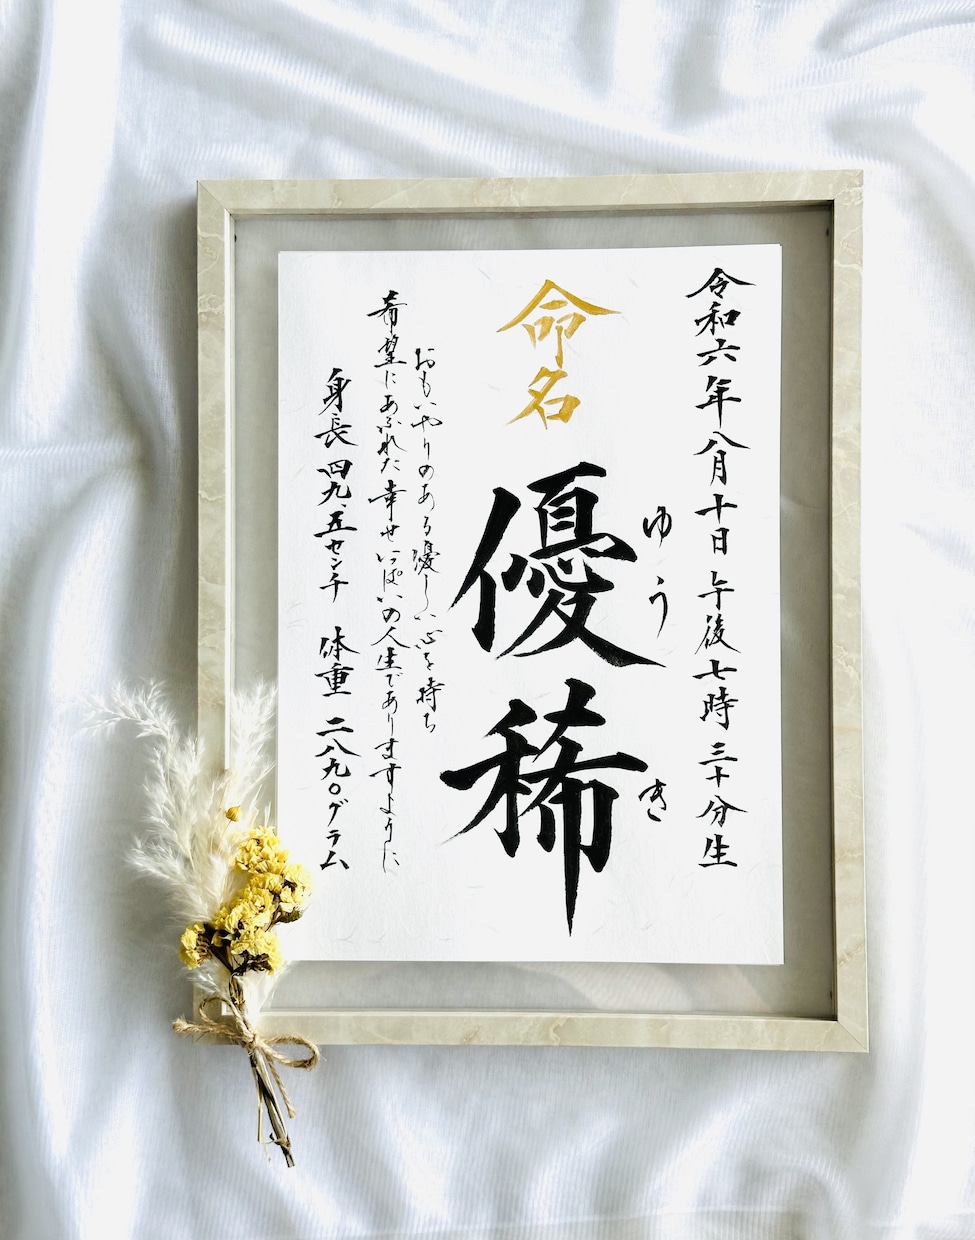 令和六年八月十日 午後七時三十分生
命名
優稀
ゆうき
おもいやりのある優しい心を持ち
希望にあふれた幸せいっぱいの人生でありますように
身長 四九.五センチ 体重 二八九〇グラム